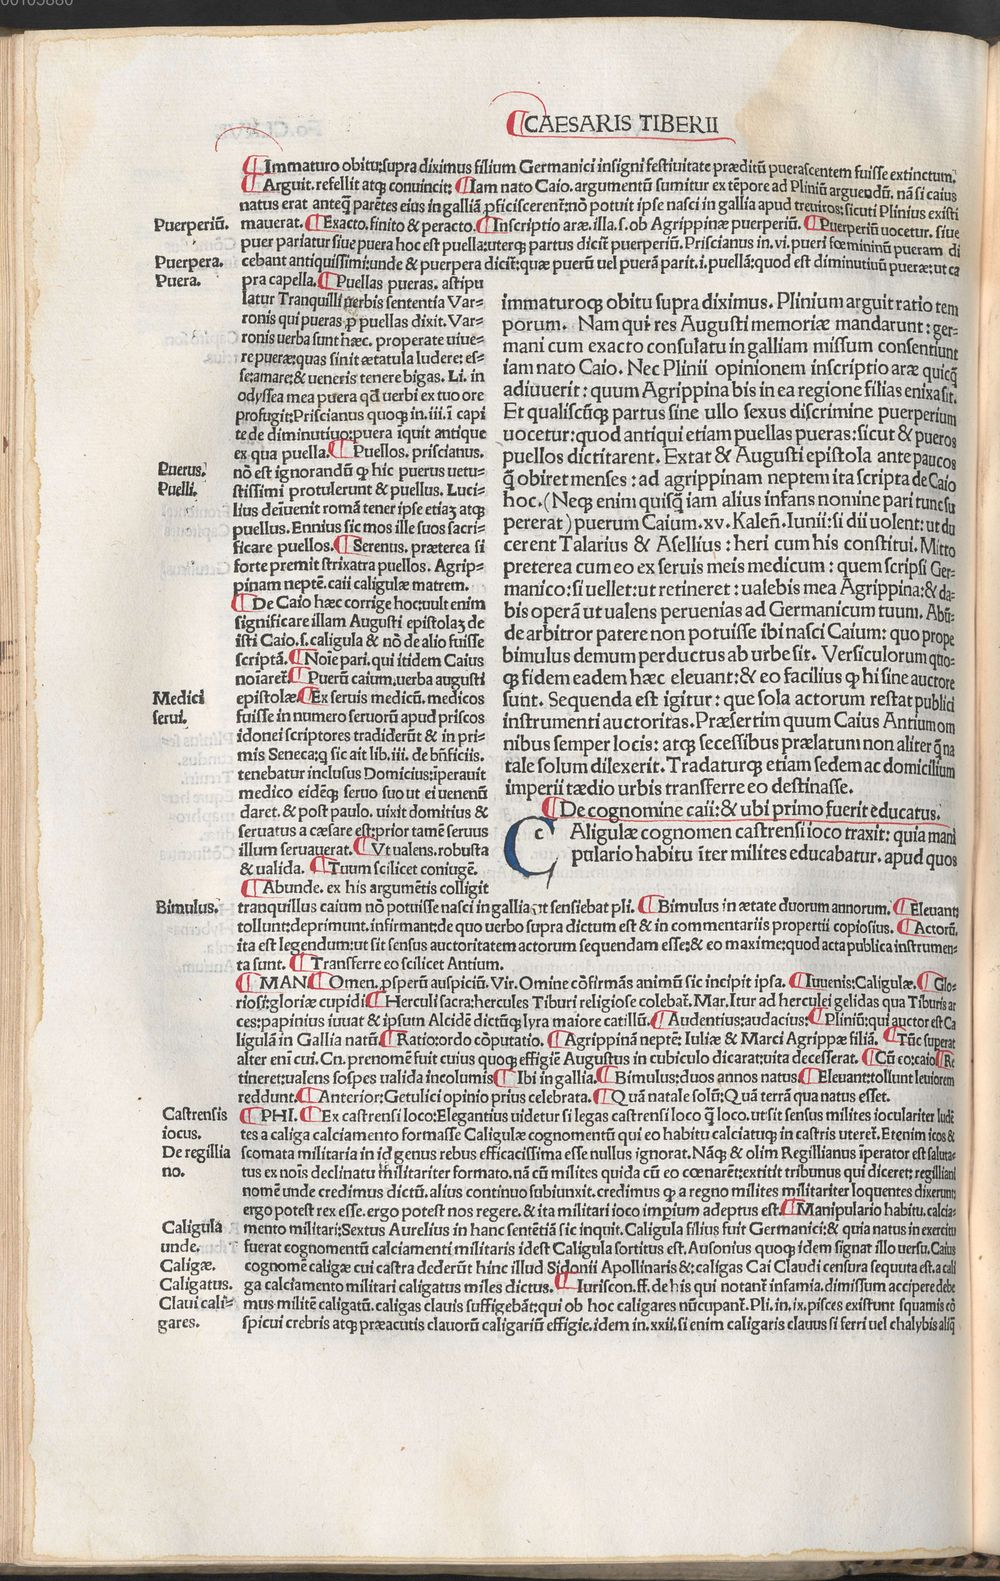 CAESARIS TIBERII
¶Immaturo obitu:supra diximus filium Germanici insigni festiuitate præditũ puerascentem fuisse extinctum.
¶Arguit.refellit atq; conuincit: ¶Iam nato Caio.argumentũ sumitur ex tẽpore ad Pliniũ arguendũ. nã si caius
natus erat anteq̃ parẽtes eius in galliã pficiscerent:nõ potuit ipse nasci in gallia apud treuiros:sicuti Plinius existi
Puerperiũ. mauerat.¶Exacto.finito & peracto.¶Inscriptio aræ.illa.s.ob Agrippinæ puerperiũ. ¶Puerperiũ uocetur. siue
puer pariatur siue puera hoc est puella:uterq; partus dicit̃ puerperiũ.Priscianus in.vi.pueri fœmininũ pueram di
Puerpera. cebant antiquissimi:unde & puerpera dicit̃:quæ puerũ uel puerã parit.i.puellã:quod est diminutiuũ pueræ:ut ca
Puera. pra capella.¶Puellas pueras. astipu
latur Tranquilli uerbis sententia Var=
ronis qui pueras p puellas dixit. Var=
ronis uerba sunt hæc. properate uiue=
re pueræ:quas sinit ætatula ludere: es=
se:amare:& ueneris tenere bigas. Li. in
odyssea mea puera qd uerbi ex tuo ore
profugit:Priscianus quoq; in.iii.ĩ capi
te de diminutiuo:puera iquit antique
ex qua puella.¶ Puellos. priscianus.
Puerus. nõ est ignorandũ ꝙ hic puerus uetu=
Puelli. stissimi protulerunt & puellus. Luci=
lius deĩuenit romã tener ipse etiaʒ atq;
puellus. Ennius sic mos ille suos sacri=
ficare puellos.¶Serenus. præterea si
forte premit strixatra puellos. Agrip=
pinam neptẽ. caii caligulæ matrem.
¶De Caio hæc corrige hoc:uult enim
significare illam Augusti epistolaʒ de
isti Caio.s.caligula & nõ de alio fuisse
scriptã.¶Noĩe pari. qui itidem Caius
noĩaret̃.¶Puerũ caium.uerba augusti
Medici epistolæ.¶Ex seruis medicũ. medicos
serui. fuisse in numero seruorũ apud priscos
idonei scriptores tradiderũt & in pri=
mis Seneca:q sic ait lib.iii. de bñficiis.
tenebatur inclusus Domicius:ĩperauit
medico eidẽq; seruo suo ut ei uenenũ
daret. & post paulo. uixit domitius &
seruatus a cæsare est:prior tamẽ seruus
illum seruauerat.¶Vt ualens.robusta
& ualida. ¶Tuum scilicet coniugẽ.
¶Abunde. ex his argumẽtis colligit
immaturoq; obitu supra diximus. Plinium arguit ratio tem
porum. Nam qui res Augusti memoriæ mandarunt : ger=
mani cum exacto consulatu in galliam missum consentiunt
iam nato Caio. Nec Plinii opinionem inscriptio aræ quicq̃
adiuuerit : quum Agrippina bis in ea regione filias enixa sit.
Et qualiscũq; partus sine ullo sexus discrimine puerperium
uocetur:quod antiqui etiam puellas pueras:sicut & pueros
puellos dictitarent. Extat & Augusti epistola ante paucos
q̃ obiret menses : ad agrippinam neptem ita scripta de Caio
hoc.(Neq; enim quisq̃ iam alius infans nomine pari tunc su
pererat) puerum Caium.xv. Kaleñ. Iunii: si dii uolent: ut du
cerent Talarius & Asellius : heri cum his constitui. Mitto
preterea cum eo ex seruis meis medicum : quem scripsi Ger=
manico:si uellet:ut retineret : ualebis mea Agrippina:& da=
bis operã ut ualens peruenias ad Germanicum tuum. Abũ=
de arbitror patere non potuisse ibi nasci Caium: quo prope
bimulus demum perductus ab urbe sit. Versiculorum quo=
q; fidem eadem hæc eleuant:& eo facilius ꝙ hi sine auctore
sunt. Sequenda est igitur : que sola actorum restat publici
instrumenti auctoritas. Præsertim quum Caius Antium om
nibus semper locis: atq; secessibus prælatum non aliter q̃ na
tale solum dilexerit. Traditurq; etiam sedem ac domicilium
imperii tædio urbis transferre eo destinasse.
¶De cognomine caii:& ubi primo fuerit educatus.
C Aligulæ cognomen castrensi ioco traxit: quia mani
pulario habitu ĩter milites educabatur. apud quos
Bimulus. tranquillus caium nõ potuisse nasci in gallia ut sensiebat pli. ¶Bimulus in ætate duorum annorum. ¶Eleuant:
tollunt:deprimunt.infirmant:de quo uerbo supra dictum est & in commentariis propertii copiosius. ¶Actorũ,
ita est legendum:ut sit sensus auctoritatem actorum sequendam esse:& eo maxime:quod acta publica instrumen=
ta sunt. ¶Transferre eo scilicet Antium.
¶MAN¶Omen.psperũ auspiciũ. Vir. Omine cõsirmãs animũ sic incipit ipsa. ¶Iuuenis:Caligulæ.¶Glo=
riosi:gloriæ cupidi¶Herculi sacra:hercules Tiburi religiose colebat̃. Mar. Itur ad herculei gelidas qua Tiburis ar
ces:papinius iuuat & ipsum Alcidẽ dictũq; lyra maiore catillũ.¶Audentius:audacius:¶Pliniũ:qui auctor est Ca
ligulã in Gallia natũ¶Ratio:ordo cõputatio. ¶Agrippinã neptẽ: Iuliæ & Marci Agrippæ filiã. ¶Tũc superat
alter eni cui. Cn. prenomẽ fuit cuius quoq; effigiẽ Augustus in cubiculo dicarat:uita decesserat. ¶Cũ eo:caio¶Re
tineret:ualens sospes ualida incolumis¶Ibi in gallia.¶Bimulus:duos annos natus¶Eleuant:tollunt leuiorem
reddunt.¶Anterior:Getulici opinio prius celebrata.¶Quã natale solũ:Quã terrã qua natus esset.
Castrensis ¶PHI.¶Ex castrensi loco:Elegantius uidetur si legas castrensi loco q̃ loco.ut sit sensus milites ioculariter ludẽ
iocus. tes a caliga calciamento formasse Caligulæ cognomentũ qui eo habitu calciatuq; in castris uteret̃. Etenim icos &
De regillia scomata militaria in id genus rebus efficacissima esse nullus ignorat. Nãq; & olim Regillianus ĩperator est saluta=
no. tus ex noĩs declinatu militariter formato.nã cũ milites quida cũ eo cœnarẽt:extitit tribunus qui diceret: regilliani
nomẽ unde credimus dictũ. alius continuo subiunxit. credimus ꝙ a regno milites militariter loquentes dixerunt:
ergo potest rex esse. ergo potest nos regere. & ita militari ioco impium adeptus est.¶Manipulario habitu. calcia=
Caligula mento militari:Sextus Aurelius in hanc sentẽtiã sic inquit. Caligula filius fuit Germanici:& quia natus in exercitu
unde. fuerat cognomentũ calciamenti militaris idest Caligula sortitus est. Ausonius quoq; idem signat illo uersu. Caius
Caligæ. cognomẽ caligæ cui castra dederũt hinc illud Sidonii Apollinaris &:caligas Cai Claudi censura sequuta est. a cali
Caligatus. ga calciamento militari caligatus miles dictus. ¶Iuriscon.ff.de his qui notant̃ infamia. dimissum accipere debe
Claui cali= mus militẽ caligatũ.caligas clauis suffigebãt:qui ob hoc caligares nũcupant̃. Pli. in.ix.pisces existunt squamis cõ
gares. spicui crebris atq; præacutis clauorũ caligariũ effigie. idem in.xxii.si enim caligaris clauus si ferri uel chalybis aliq̃